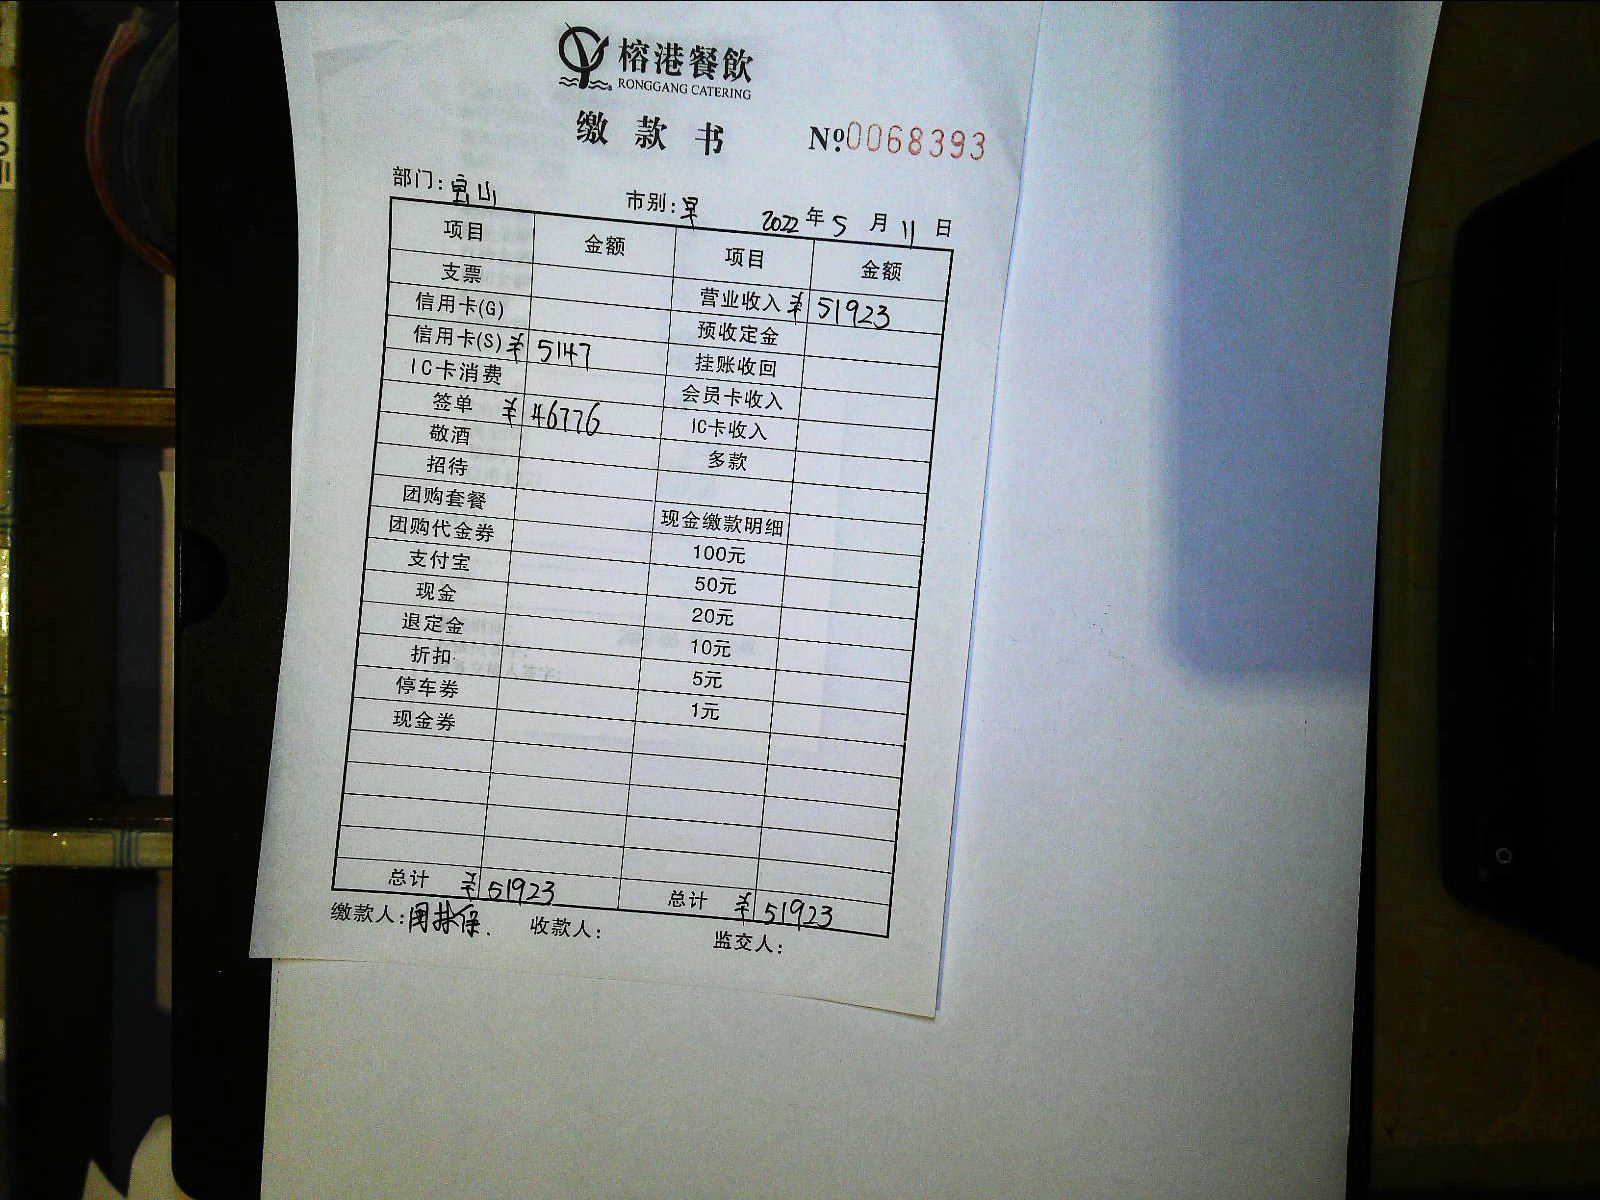 榕港餐飲
RONGGANG CATERING
缴 款 书 Nº0068393
部门：宝山 市别：早 2022 年 5 月 11 日
项目 金额 项目 金额
支票 营业收入 ¥ 51923
信用卡(G) 预收定金
信用卡(S) ¥ 5147 挂账收回
IC卡消费 会员卡收入
签单 ¥ 46776 IC卡收入
敬酒 多款
招待
团购套餐 现金缴款明细
团购代金券 100元
支付宝 50元
现金 20元
退定金 10元
折扣 5元
停车券 1元
现金券
总计 ¥ 51923 总计 ¥ 51923
缴款人： 收款人： 监交人：